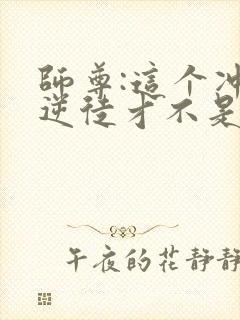 師尊:這个冲
逆徒才不是
午夜的花静静